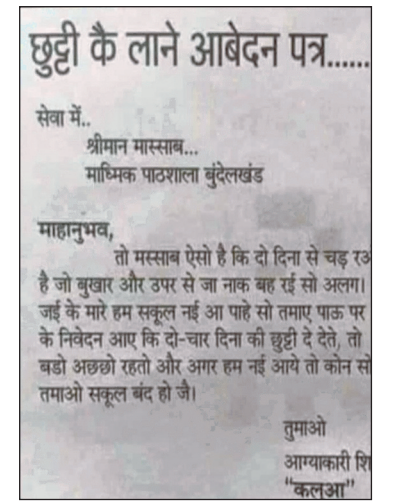 छुट्टी कै लाने आबेदन पत्र......
सेवा में..
श्रीमान मास्साब...
माध्मिक पाठशाला बुंदेलखंड
माहानुभव,
तो मस्साब ऐसो है कि दो दिना से चड़ रअ
है जो बुखार और उपर से जा नाक बह रई सो अलग।
जई के मारे हम सकूल नई आ पाहे सो तमाए पाऊ पर
के निवेदन आए कि दो-चार दिना की छुट्टी दे देते, तो
बडो अछछो रहतो और अगर हम नई आये तो कोन सो
तमाओ सकूल बंद हो जै।
तुमाओ
आग्याकारी शि
"कलआ"